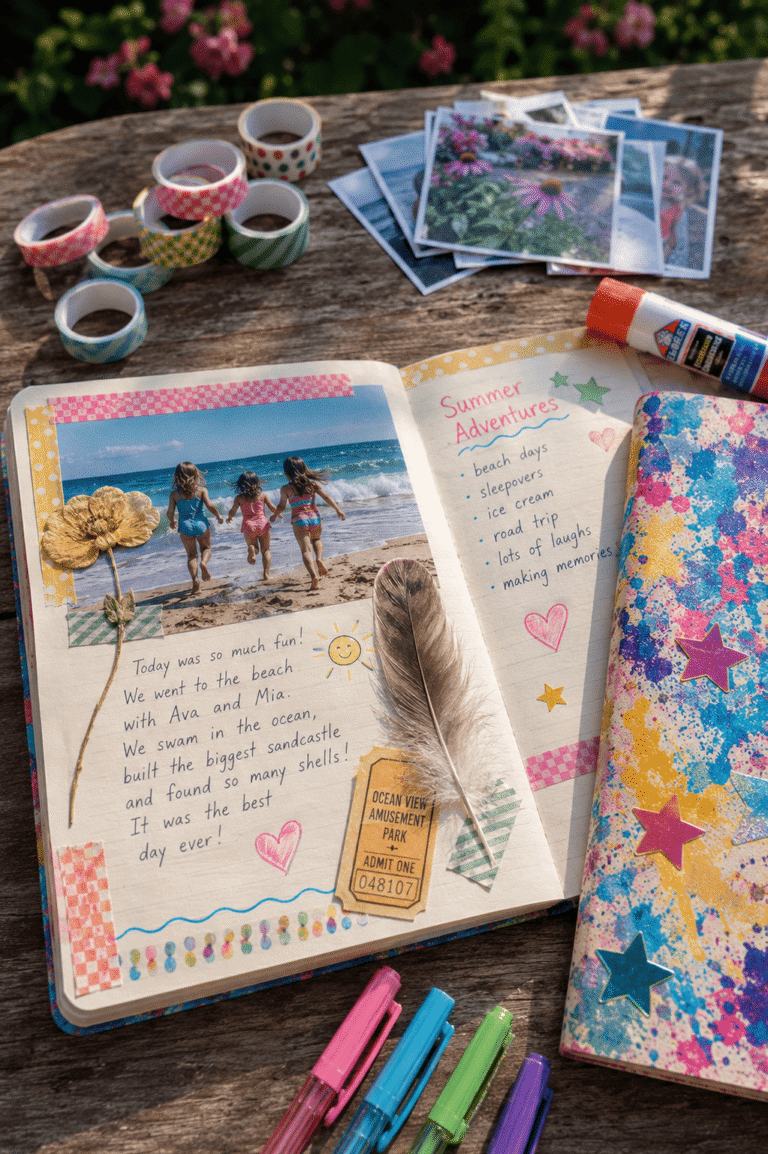 Today was so much fun!
We went to the beach
with Ava and Mia.
We swam in the ocean,
built the biggest sandcastle
and found so many shells!
It was the best
day ever!
OCEAN VIEW
AMUSEMENT
PARK
ADMIT ONE
048107
Summer
Adventures
• beach days
• sleepovers
• ice cream
• road trip
• lots of laughs
• making memories